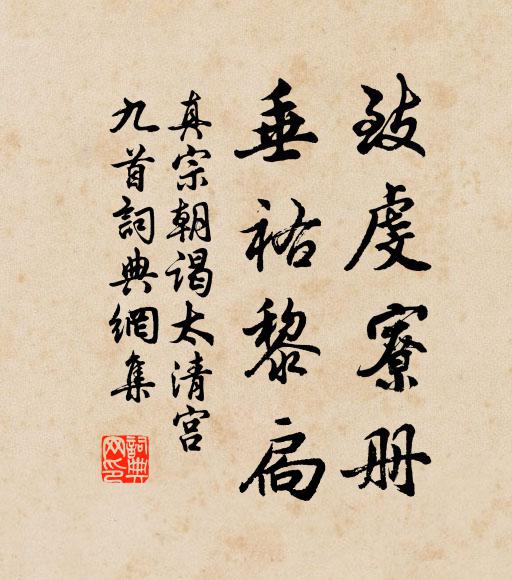 致虔寮册
垂祐黎扁
真宗朝谒太清宫
九首詞典網集
詞典
网印